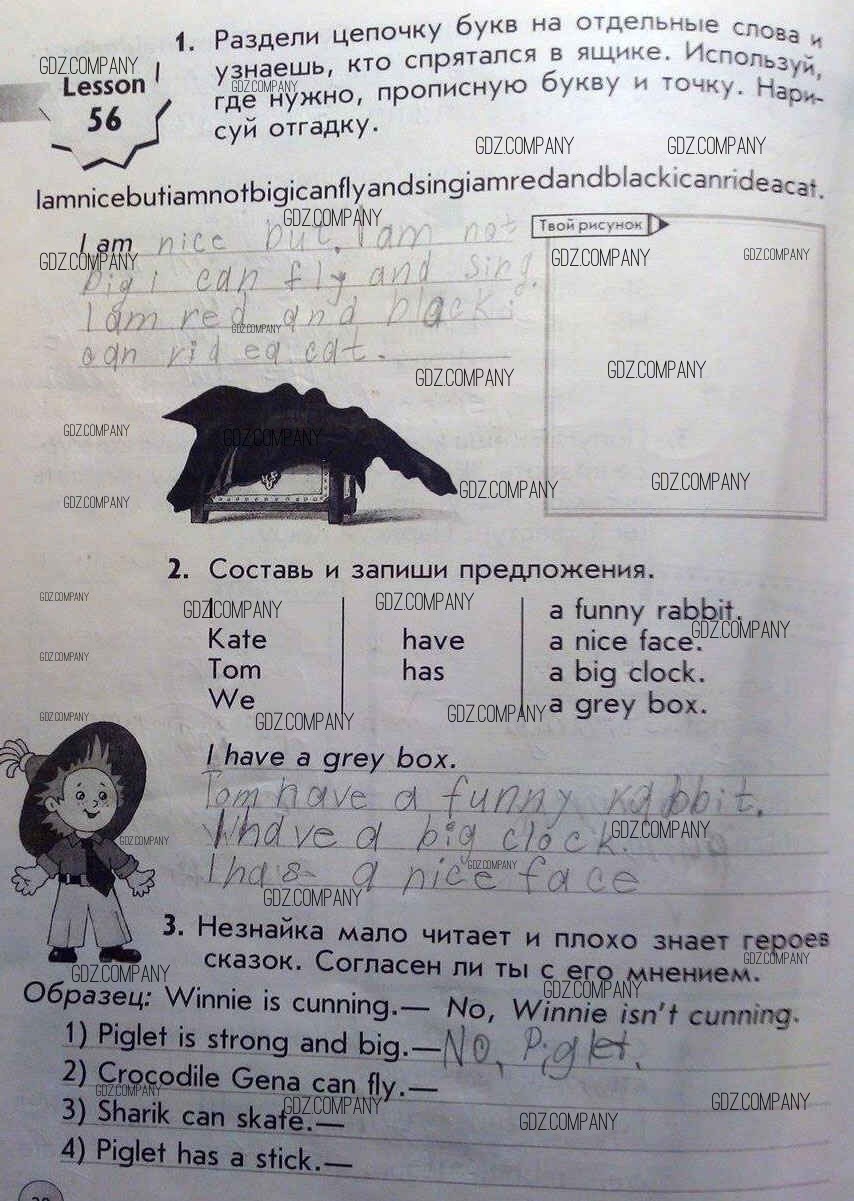 Lesson
56
1. Раздели цепочку букв на отдельные слова и
узнаешь, кто спрятался в ящике. Используй,
где нужно, прописную букву и точку. Нари-
суй отгадку.
Iamnicebutiamnotbigicanflyandsingiamredandblackicanrideacat.
I am nice but. I am not
big i can fly and sing.
I am red and black i
can rid ea cat.
Твой рисунок
2. Составь и запиши предложения.
I
Kate
Tom
We
have
has
a funny rabbit.
a nice face.
a big clock.
a grey box.
I have a grey box.
Tom have a funny rabbit.
have a big clock.
I has a nice face
3. Незнайка мало читает и плохо знает героев
сказок. Согласен ли ты с его мнением.
Образец: Winnie is cunning.— No, Winnie isn't cunning.
1) Piglet is strong and big.— No, Piglet.
2) Crocodile Gena can fly.—
3) Sharik can skate.—
4) Piglet has a stick.—
GDZ.COMPANY